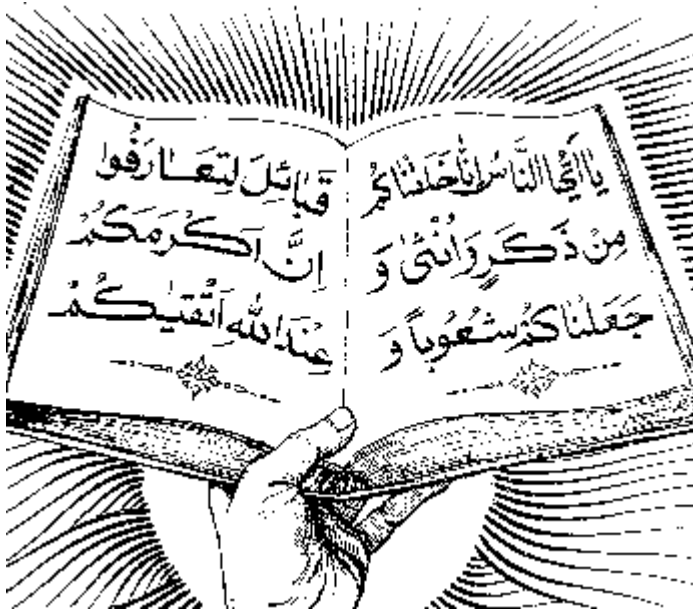 يَا أَيُّهَا النَّاسُ اِنَّا خَلَقْنَاكُمْ
مِنْ ذَكَرٍ وَاُنْثىٰ وَ
جَعَلْنَاكُمْ شُعُوباً وَ
قَبَائِلَ لِتَعَارَفُوا
اِنَّ اَكْرَمَكُمْ
عِنْدَاللهِ اَتْقَيٰكُمْ